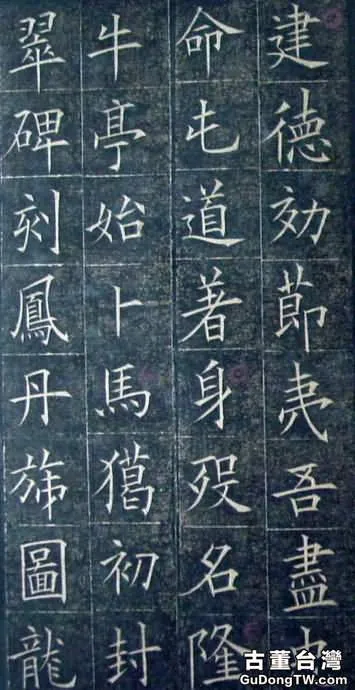 建德効節夷吾盡
命屯道著身歿名隆
牛亭始卜馬獦初封
翠碑刻鳳丹旐圖龍
古董台灣
GuDongTW.com